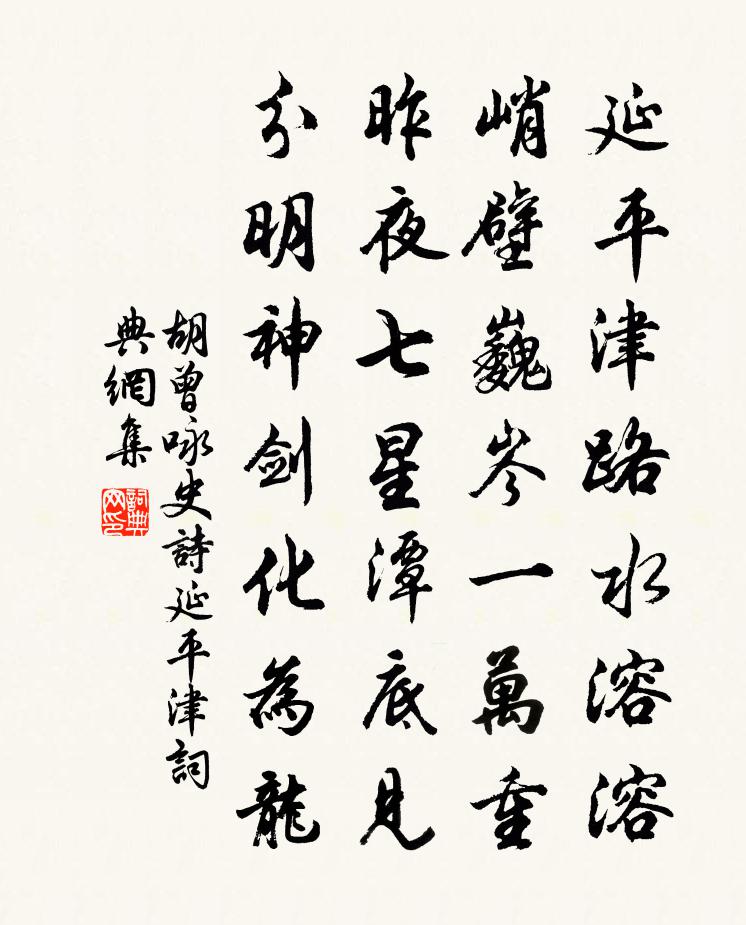 延平津路水溶溶
峭壁巍岑一萬重
昨夜七星潭底見
分明神劍化為龍
胡曾咏史詩延平津詞
典網集
詞典
网印